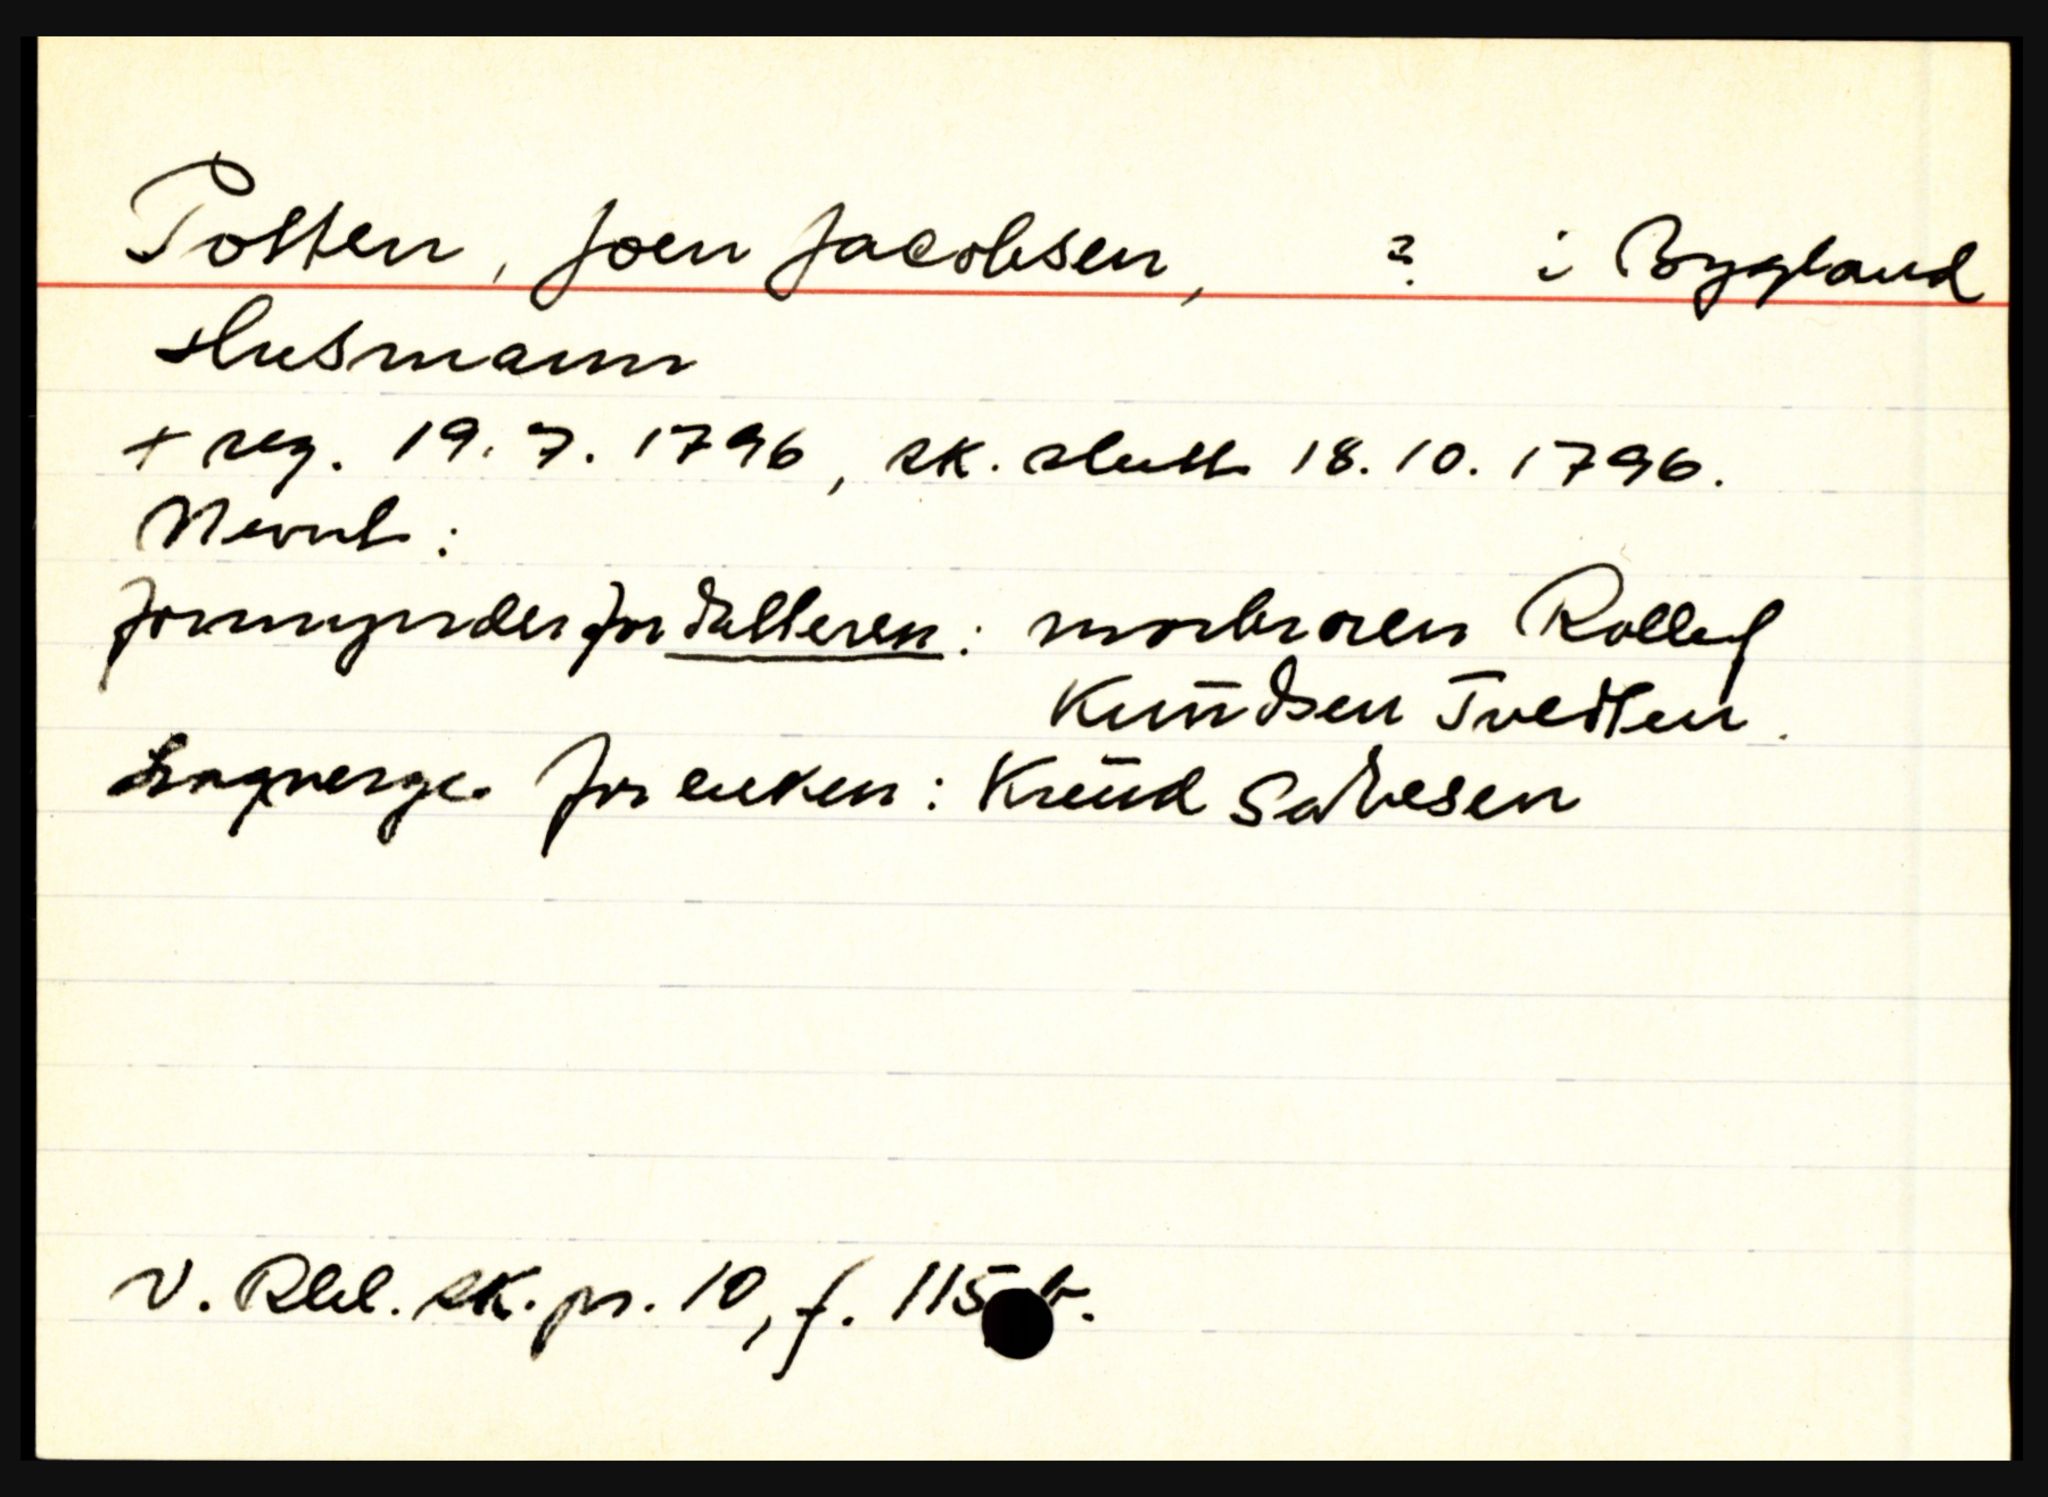 Posten, Joen Jacobsen, ? i Bygland
Husmann
+ reg. 19.7.1796, sk. slutt 18.10.1796.
Nevnt:
formynder for datteren: morbroren Rollef
Knudsen Tvedten.
Lagverge for enken: Knud Salvesen
V. Rbd. sk. pr. 10, f. 115 b.